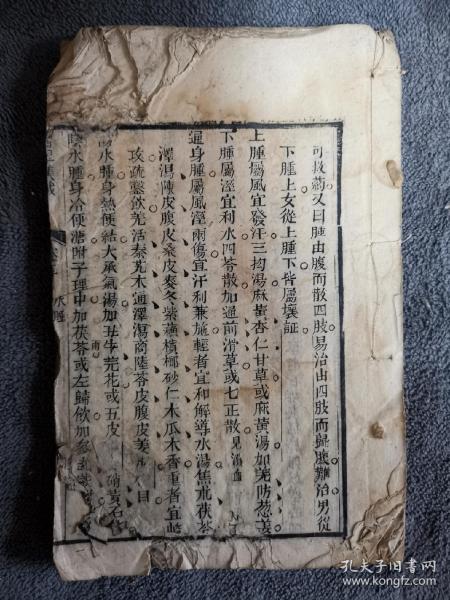 可救藥又曰腫由腹而散四肢易治由四肢而歸腹難治男從
下腫上女從上腫下皆屬壞証
上腫屬風宜發汗三拗湯麻黃杏仁甘草或麻黃湯加羌防葱姜
下腫屬溼宜利水四苓散加通前滑草或七正散
通身腫屬風溼兩傷宜汗利兼施輕者宜和解導水湯焦朮茯苓
澤瀉陳皮腹皮桑皮麥冬紫蘇檳榔砂仁木瓜木香重者宜
攻疏鑿飲羌活秦艽木通澤瀉商陸苓皮腹皮姜 目
水腫身熱便結大承氣湯加 牛芫花或五皮
水腫身冷便溏附子理中加茯苓或左歸飲加
水腫
孔夫子旧书网
www.kongfz.com